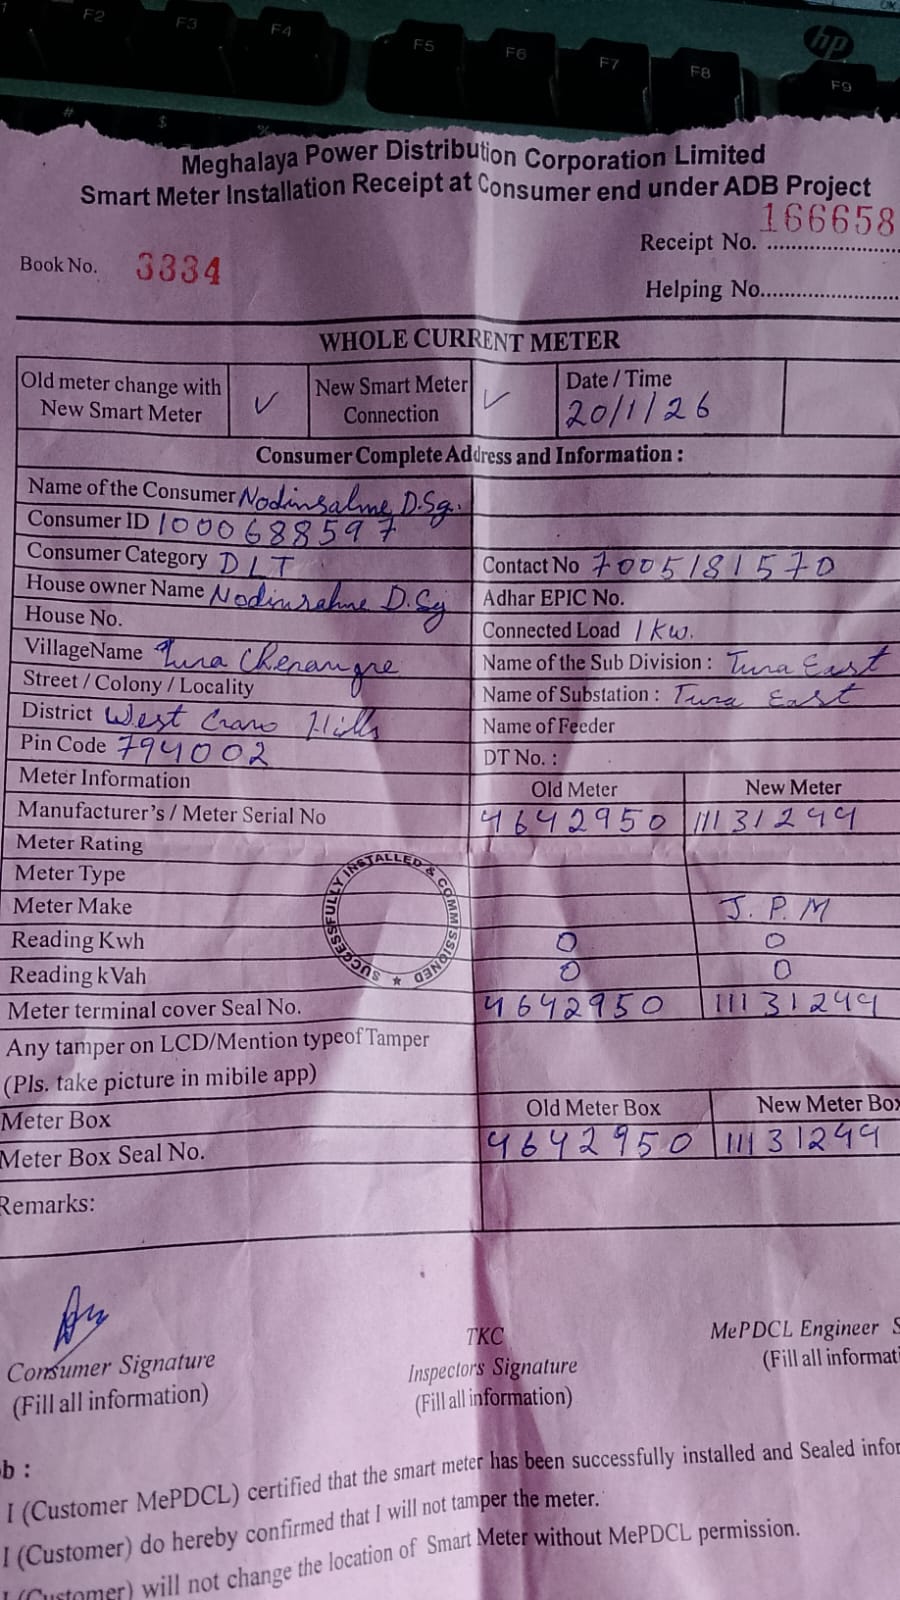 F2 F3 F4 F5 F6 F7 F8 F9
hp
# $ %
Meghalaya Power Distribution Corporation Limited
Smart Meter Installation Receipt at Consumer end under ADB Project
Receipt No. 166658
Book No. 3334
Helping No.
WHOLE CURRENT METER
Old meter change with New Smart Meter ✓ New Smart Meter Connection ✓ Date / Time 20/1/26
Consumer Complete Address and Information :
Name of the Consumer Nodinsalme D.Sg.
Consumer ID 1000688597
Consumer Category DLT Contact No 7005181570
House owner Name D.Sg Adhar EPIC No.
House No. Connected Load 1kw.
VillageName Tura Cherangre Name of the Sub Division : Tura East
Street / Colony / Locality Name of Substation : Tura East
District West Garo Hills Name of Feeder
Pin Code 794002 DT No. :
Meter Information Old Meter New Meter
Manufacturer's / Meter Serial No 4642950 11131244
Meter Rating
Meter Type
Meter Make J.P.M
Reading Kwh 0 0
Reading kVah 0 0
SUCCESSFULLY INSTALLED & COMMISSIONED ★
Meter terminal cover Seal No. 4642950 11131244
Any tamper on LCD/Mention typeof Tamper
(Pls. take picture in mibile app)
Meter Box Old Meter Box New Meter Box
Meter Box Seal No. 4642950 11131244
Remarks:
Consumer Signature TKC MePDCL Engineer S
(Fill all information) Inspectors Signature (Fill all informati
(Fill all information)
b :
I (Customer MePDCL) certified that the smart meter has been successfully installed and Sealed infor
I (Customer) do hereby confirmed that I will not tamper the meter.
I (Customer) will not change the location of Smart Meter without MePDCL permission.